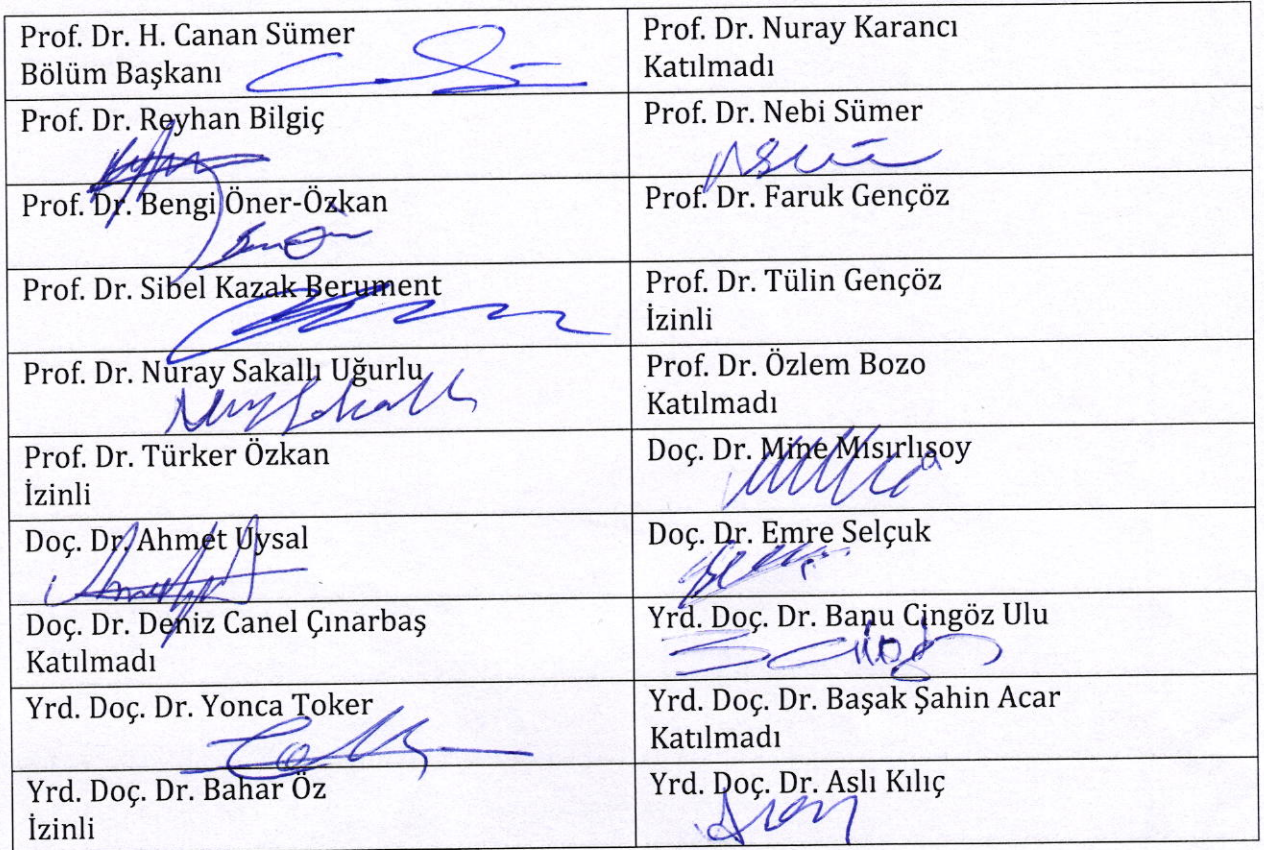 Prof. Dr. H. Canan Sümer
Bölüm Başkanı
Prof. Dr. Nuray Karancı
Katılmadı
Prof. Dr. Reyhan Bilgiç
Prof. Dr. Nebi Sümer
Prof. Dr. Bengi Öner-Özkan
Prof. Dr. Faruk Gençöz
Prof. Dr. Sibel Kazak Berument
Prof. Dr. Tülin Gençöz
İzinli
Prof. Dr. Nuray Sakallı Uğurlu
Prof. Dr. Özlem Bozo
Katılmadı
Prof. Dr. Türker Özkan
İzinli
Doç. Dr. Mine Mısırlısoy
Doç. Dr. Ahmet Uysal
Doç. Dr. Emre Selçuk
Doç. Dr. Deniz Canel Çınarbaş
Katılmadı
Yrd. Doç. Dr. Banu Cingöz Ulu
Yrd. Doç. Dr. Yonca Toker
Yrd. Doç. Dr. Başak Şahin Acar
Katılmadı
Yrd. Doç. Dr. Bahar Öz
İzinli
Yrd. Doç. Dr. Aslı Kılıç